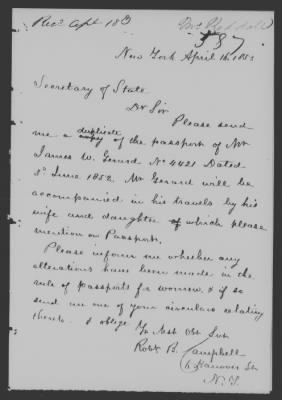 Recd Apl 18
587
New York April 16. 1853
Secretary of State
Dr Sir
Please send
me a duplicate copy of the passport of Mr
James W. Gerard No 4421 Dated
5th June 1852. Mr Gerard will be
accompanied in his travels by his
wife and daughter of which please
mention on Passport.
Please inform me whether any
alterations have been made in the
rule of passports for women & if so
send me one of your circulars relating
thereto. & oblige Yr Most Obt Svt
Robt B. Campbell
Hanover St
N.Y.